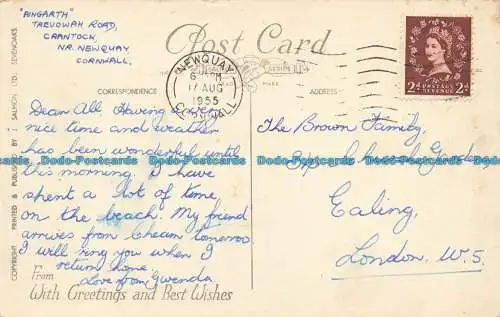 "PINGARTH"
TREVOWAH ROAD,
CRANTOCK,
NR. NEWQUAY
CORNWALL.
Post Card
NEWQUAY
17 AUG
1955
CORNWALL
2d POSTAGE REVENUE 2d
CORRESPONDENCE
ADDRESS
Dear All Having a very
nice time and weather
has been wonderful until
this morning. I have
spent a lot of time
on the beach. My friend
arrives from Cheam tomorrow.
I will ring you when I
return home.
Love from Gwenda
From
With Greetings and Best Wishes
The Brown Family,
Gardens,
Ealing,
London. W.5.
COPYRIGHT PRINTED & PUBLISHED BY J SALMON LTD. SEVENOAKS
Dodo-Postcards Dodo-Postcards Dodo-Postcards Dodo-Postcards